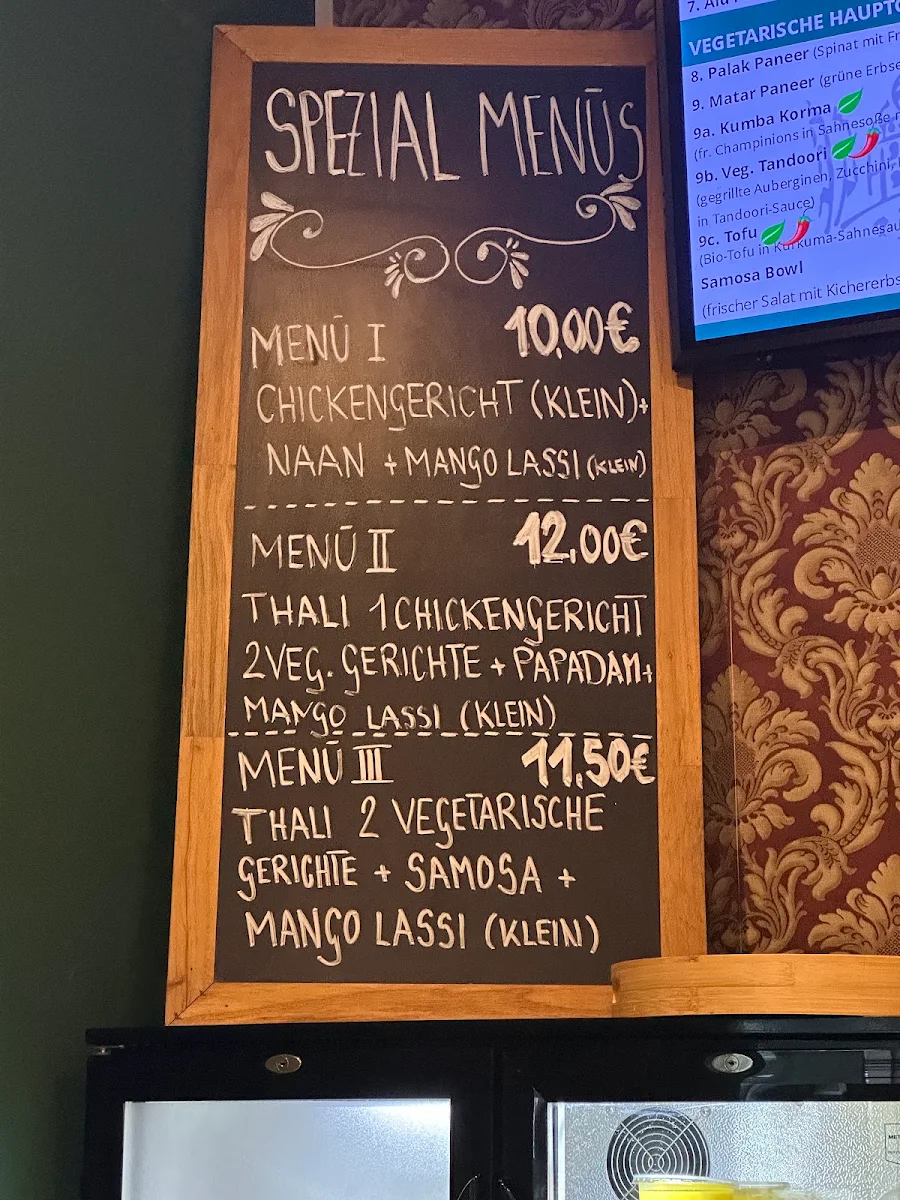 SPEZIAL MENÜS
MENÜ I 10,00€
CHICKENGERICHT (KLEIN)+
NAAN + MANGO LASSI (KLEIN)
MENÜ II 12,00€
THALI 1 CHICKENGERICHT
2 VEG. GERICHTE + PAPADAM+
MANGO LASSI (KLEIN)
MENÜ III 11,50€
THALI 2 VEGETARISCHE
GERICHTE + SAMOSA +
MANGO LASSI (KLEIN)
VEGETARISCHE
8. Palak Paneer (Spinat mit
9. Matar Paneer (grüne
9a. Kumba Korma
(fr. Champinions in Sahnesoße
9b. Veg. Tandoori
(gegrillte Auberginen, Zucchini,
in Tandoori-Sauce)
9c. Tofu
(Bio-Tofu in Kurkuma-
Samosa Bowl
(frischer Salat mit